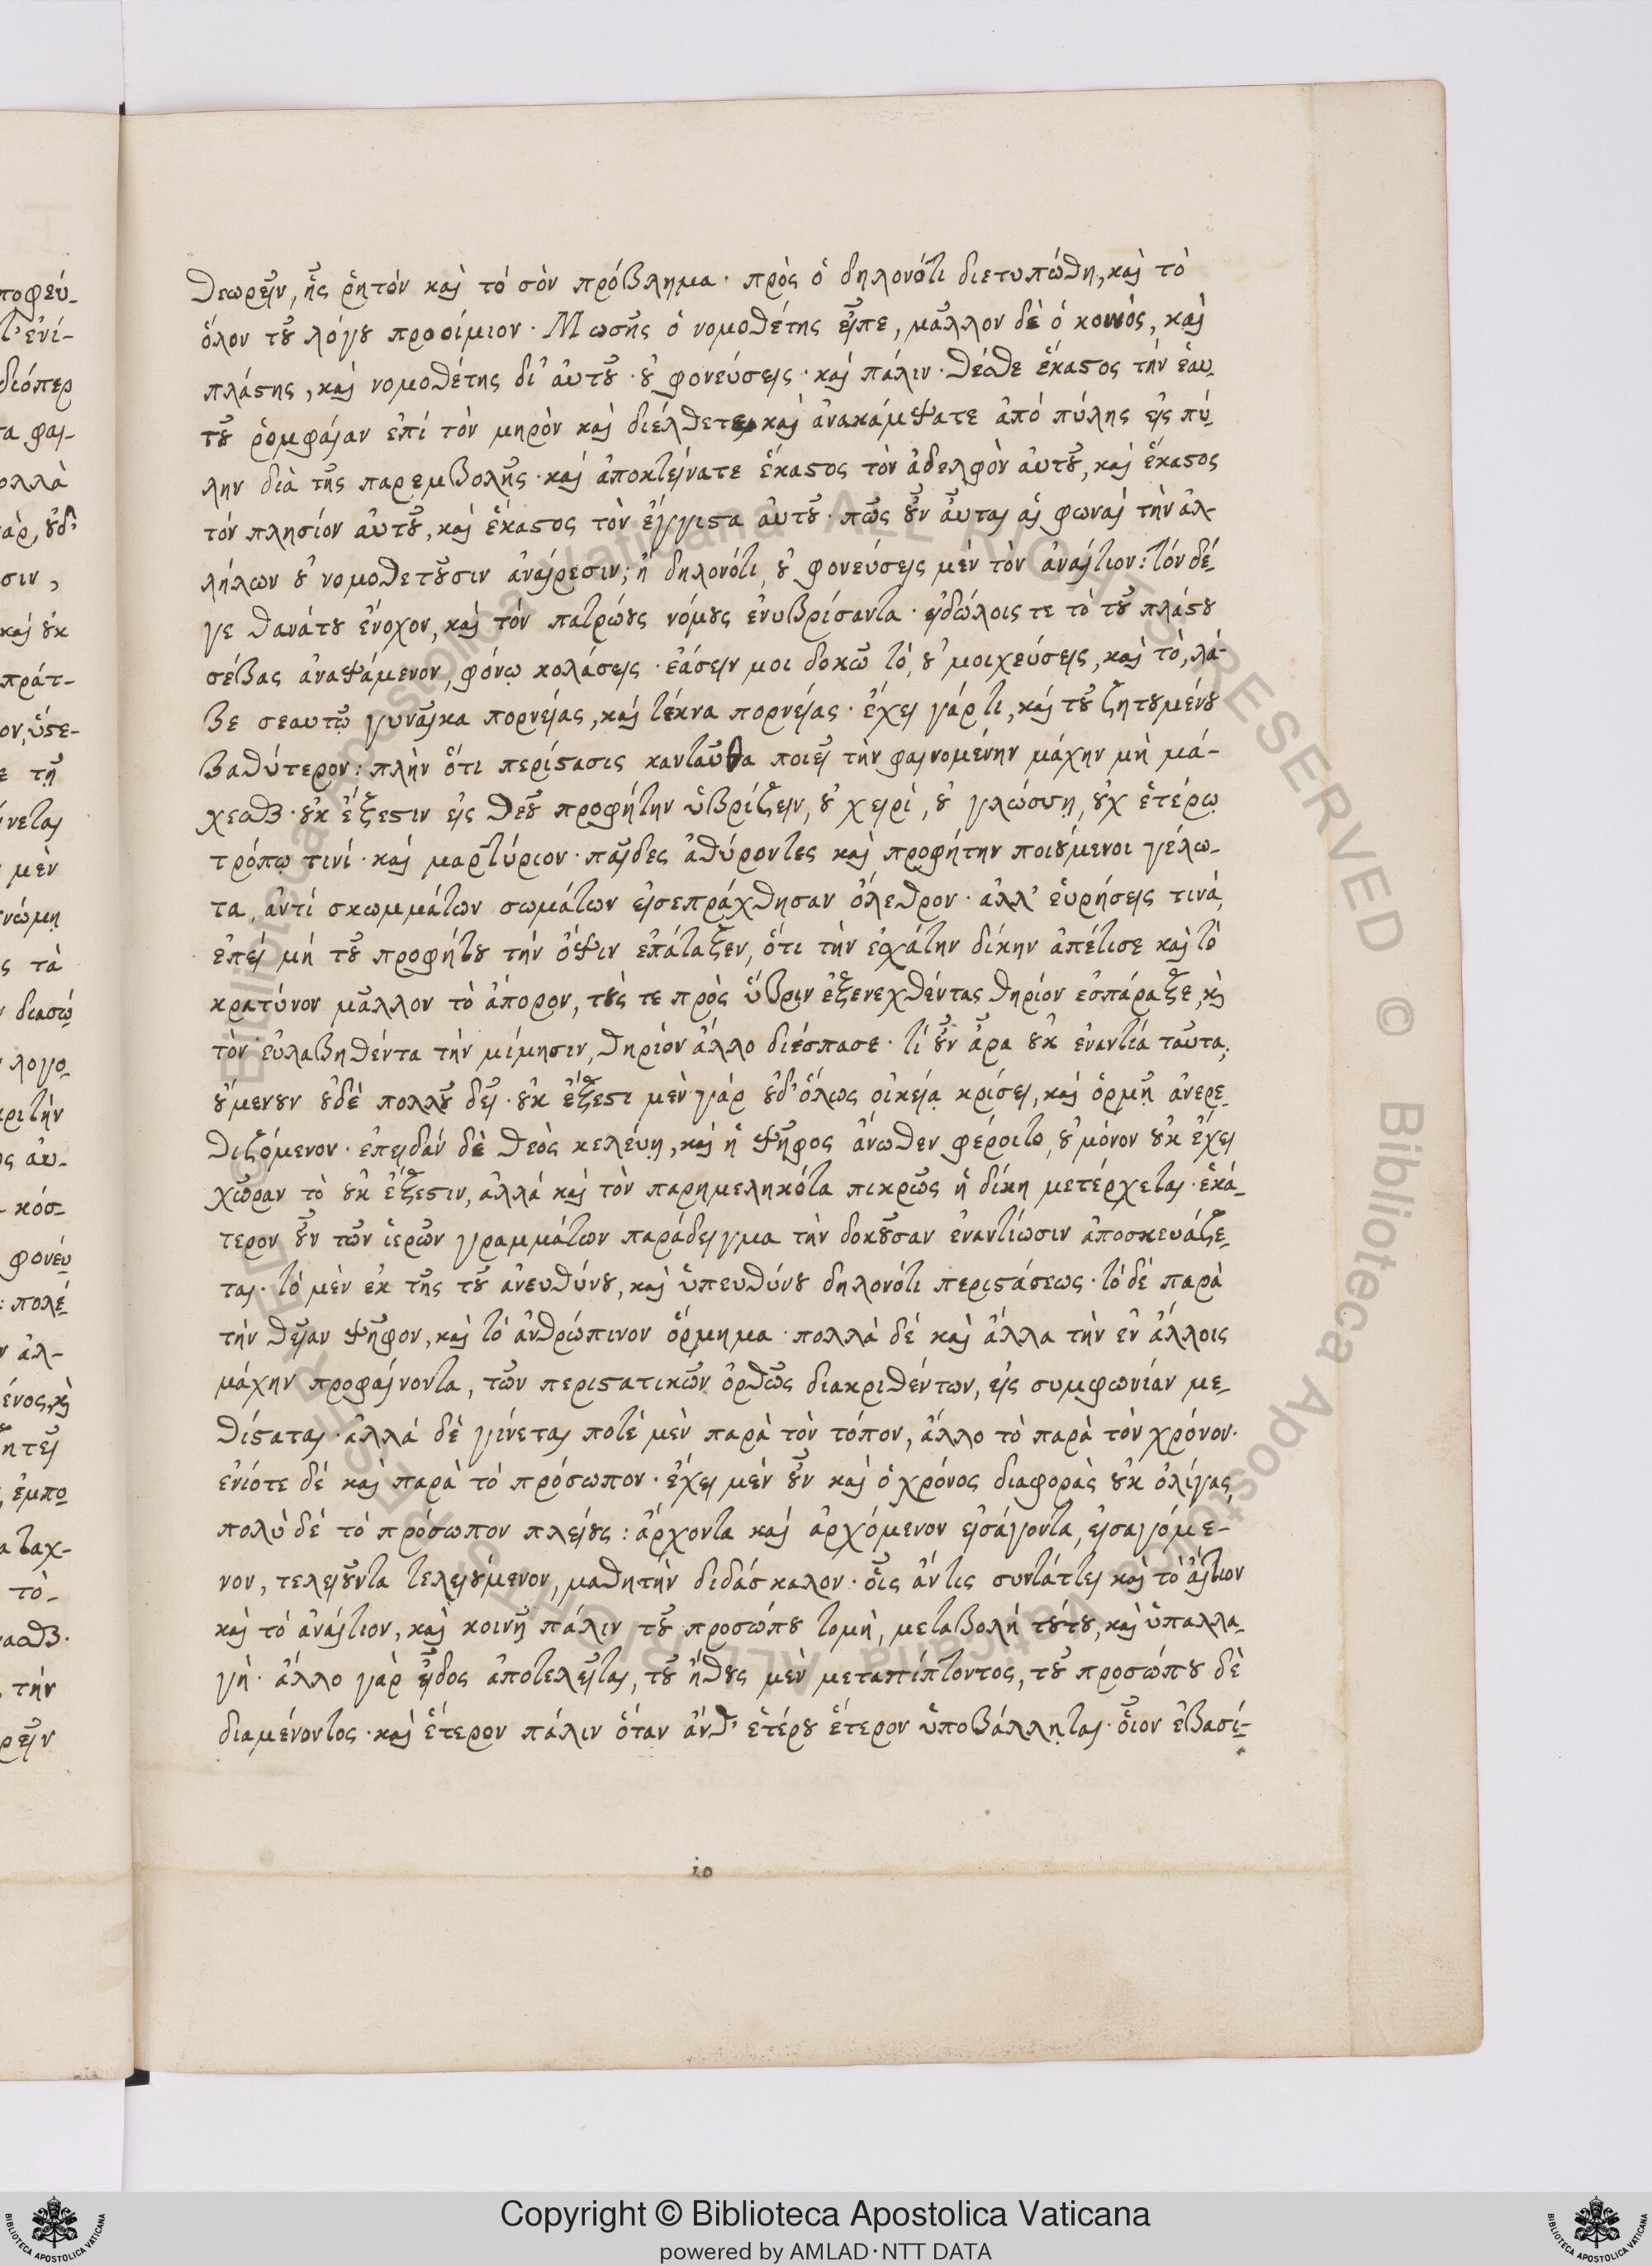 θεωρεῖν, ἧς ῥητόν καὶ τό σόν πρόβλημα · πρὸς ὁ δηλονότι διετυπώθη, καὶ τὸ
ὅλον τοῦ λόγου προοίμιον · Μωσῆς ὁ νομοθέτης εἶπε, μᾶλλον δὲ ὁ κοινός, καὶ
πλάστης, καὶ νομοθέτης δι' ἀυτοῦ · οὐ φονεύσεις · καὶ πάλιν · θέσθε ἕκαστος τήν ἑαυ-
τοῦ ῥομφαίαν ἐπί τὸν μηρὸν καὶ διέλθετε καὶ ἀνακάμψατε ἀπό πύλης εἰς πύ-
λην διὰ τῆς παρεμβολῆς · καὶ ἀποκτείνατε ἕκαστος τὸν ἀδελφὸν ἀυτοῦ, καὶ ἕκαστος
τόν πλησίον ἀυτοῦ, καὶ ἕκαστος τὸν ἔγγιστα ἀυτοῦ · πῶς οὖν ἇυται αἱ φωναὶ τὴν ἀλ-
λήλων οὐ νομοθετοῦσιν ἀναίρεσιν; ἢ δηλονότι, οὐ φονεύσεις μὲν τὸν ἀναίτιον: τόν δέ
γε θανάτου ἔνοχον, καὶ τόν πατρώους νόμους ἐνυβρίσαντα · εἰδώλοις τε τὸ τοῦ πλάστου
σέβας ἀναψάμενον, φόνῳ κολάσεις · ἐάσειν μοι δοκῶ τό, οὐ μοιχεύσεις, καὶ τὸ, λά-
βε σεαυτῷ γυναῖκα πορνείας, καὶ τέκνα πορνείας · ἔχει γάρ τι, καὶ τοῦ ζητουμένου
βαθύτερον: πλὴν ὅτι περίστασις κανταῦθα ποιεῖ τὴν φαινομένην μάχην μὴ μά-
χεσθαι · οὐκ ἔξεστιν εἰς θεοῦ προφήτην ὑβρίζειν, οὐ χειρὶ, οὐ γλώσσῃ, οὐχ ἑτέρῳ
τρόπῳ τινί · καὶ μαρτύριον · παῖδες ἀθύροντες καὶ προφήτην ποιούμενοι γέλω-
τα, ἀντί σκωμμάτων σωμάτων εἰσεπράχθησαν ὄλεθρον · ἀλλ' ἑυρήσεις τινά,
ἐπεὶ μή τοῦ προφήτου τήν ὄψιν ἐπάταξεν, ὅτι τὴν ἐσχάτην δίκην ἀπέτισε καὶ τὸ
κρατύνον μᾶλλον τὸ ἄπορον, τούς τε πρὸς ὕβριν ἐξενεχθέντας θηρίον ἐσπάραξε, καὶ
τὸν ἐυλαβηθέντα τὴν μίμησιν, θηρίον ἄλλο διέσπασε · τί οὖν ἆρα οὐκ ἐναντία ταῦτα;
οὔμενουν οὐδὲ πολλοῦ δεῖ · οὐκ ἔξεστι μὲν γὰρ οὐδ' ὅλως οἰκείᾳ κρίσει, καὶ ὁρμῇ ἀνερε-
θιζόμενον · ἐπειδάν δὲ θεὸς κελεύῃ, καὶ ἡ ψῆφος ἄνωθεν φέροιτο, οὐ μόνον οὐκ ἔχει
χῶραν τὸ οὐκ ἔξεστιν, ἀλλά καὶ τὸν παρημεληκότα πικρῶς ἡ δίκη μετέρχεται · ἑκά-
τερον οὖν τῶν ἱερῶν γραμμάτων παράδειγμα τὴν δοκοῦσαν ἐναντίωσιν ἀποσκευάζε-
ται · τὸ μὲν ἐκ τῆς τοῦ ἀνευθύνου, καὶ ὑπευθύνου δηλονότι περιστάσεως · τὸ δέ παρὰ
τήν θεῖαν ψῆφον, καὶ τὸ ἀνθρώπινον ὅρμημα · πολλὰ δέ καὶ ἄλλα τὴν ἐν ἀλλοις
μάχην προφαίνοντα, τῶν περιστατικῶν ὀρθῶς διακριθέντων, εἰς συμφωνίαν με-
θίσταται · ἀλλά δέ γίνεται ποτέ μὲν παρὰ τὸν τόπον, ἄλλο τὸ παρὰ τὸν χρόνον ·
ἐνίοτε δέ καὶ παρὰ τό πρόσωπον · ἔχει μὲν οὖν καὶ ὁ χρόνος διαφορὰς οὐκ ὀλίγας,
πολὺ δέ τό πρόσωπον πλείους: ἄρχοντα καὶ ἀρχόμενον εἰσάγοντα, εἰσαγόμε-
νον, τελειοῦντα τελειούμενον, μαθητὴν διδάσκαλον · οἷς ἄν τις συντάττει καὶ τὸ ἄιτιον
καὶ τό ἀναίτιον, καὶ κοινῇ πάλιν τοῦ προσώπου τομή, μεταβολή τούτου, καὶ ὑπαλλα-
γή · ἄλλο γὰρ εἶδος ἀποτελεῖται, τοῦ ἤθους μὲν μεταπίπτοντος, τοῦ προσώπου δὲ
διαμένοντος · καὶ ἕτερον πάλιν ὅταν ἄνθ' ἑτέρου ἕτερον ὑποβάλληται · οἷον ἐβασί-
10
Copyright © Biblioteca Apostolica Vaticana
powered by AMLAD·NTT DATA